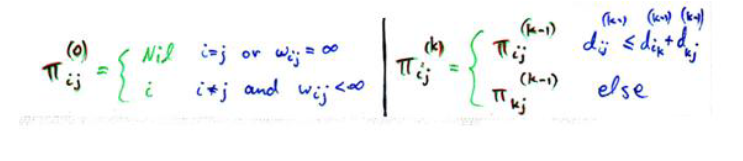 π_{ij}^{(0)} = { Nil i=j or w_{ij} = ∞
i i≠j and w_{ij} < ∞
π_{ij}^{(k)} = { π_{ij}^{(k-1)} d_{ij}^{(k-1)} ≤ d_{ik}^{(k-1)} + d_{kj}^{(k-1)}
π_{kj}^{(k-1)} else